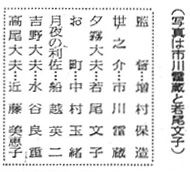 (写真は市川雷蔵と若尾文子)
監督増村保造
世之介…市川雷蔵
夕霧大夫…若尾文子
お町…中村玉緒
月夜の利佐…船越英二
吉野大夫…水谷良重
高尾大夫…近藤美恵子